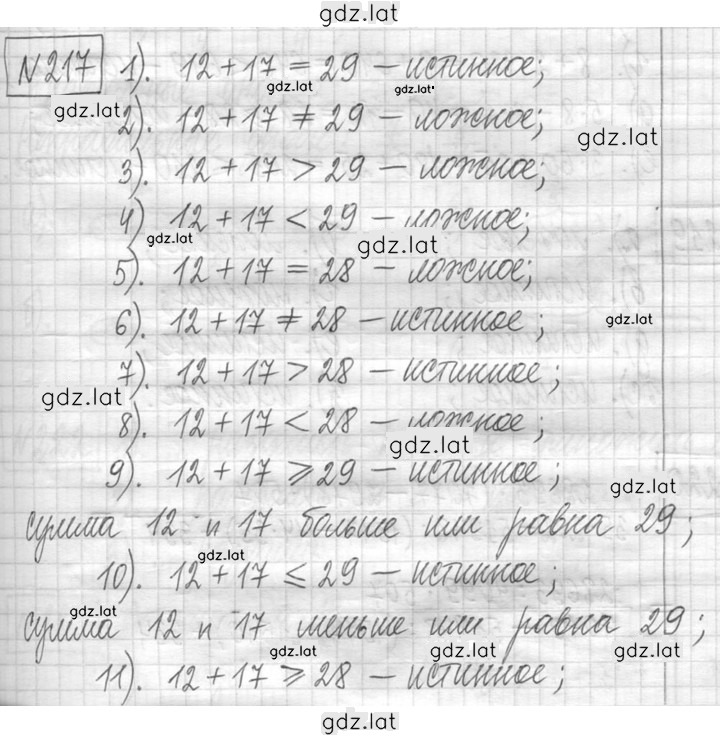 gdz.lat
№217 1). 12 + 17 = 29 – истинное;
gdz.lat gdz.lat
gdz.lat 2). 12 + 17 ≠ 29 – ложное;
gdz.lat
3). 12 + 17 > 29 – ложное;
4) 12 + 17 < 29 – ложное;
gdz.lat gdz.lat
5). 12 + 17 = 28 – ложное;
6). 12 + 17 ≠ 28 – истинное;
gdz.lat
7). 12 + 17 > 28 – истинное;
gdz.lat
8). 12 + 17 < 28 – ложное;
gdz.lat
9). 12 + 17 ⩾ 29 – истинное;
gdz.lat
сумма 12 и 17 больше или равна 29;
gdz.lat
10). 12 + 17 ⩽ 29 – истинное;
gdz.lat
сумма 12 и 17 меньше или равна 29;
gdz.lat gdz.lat gdz.lat
11). 12 + 17 ⩾ 28 – истинное;
gdz.lat